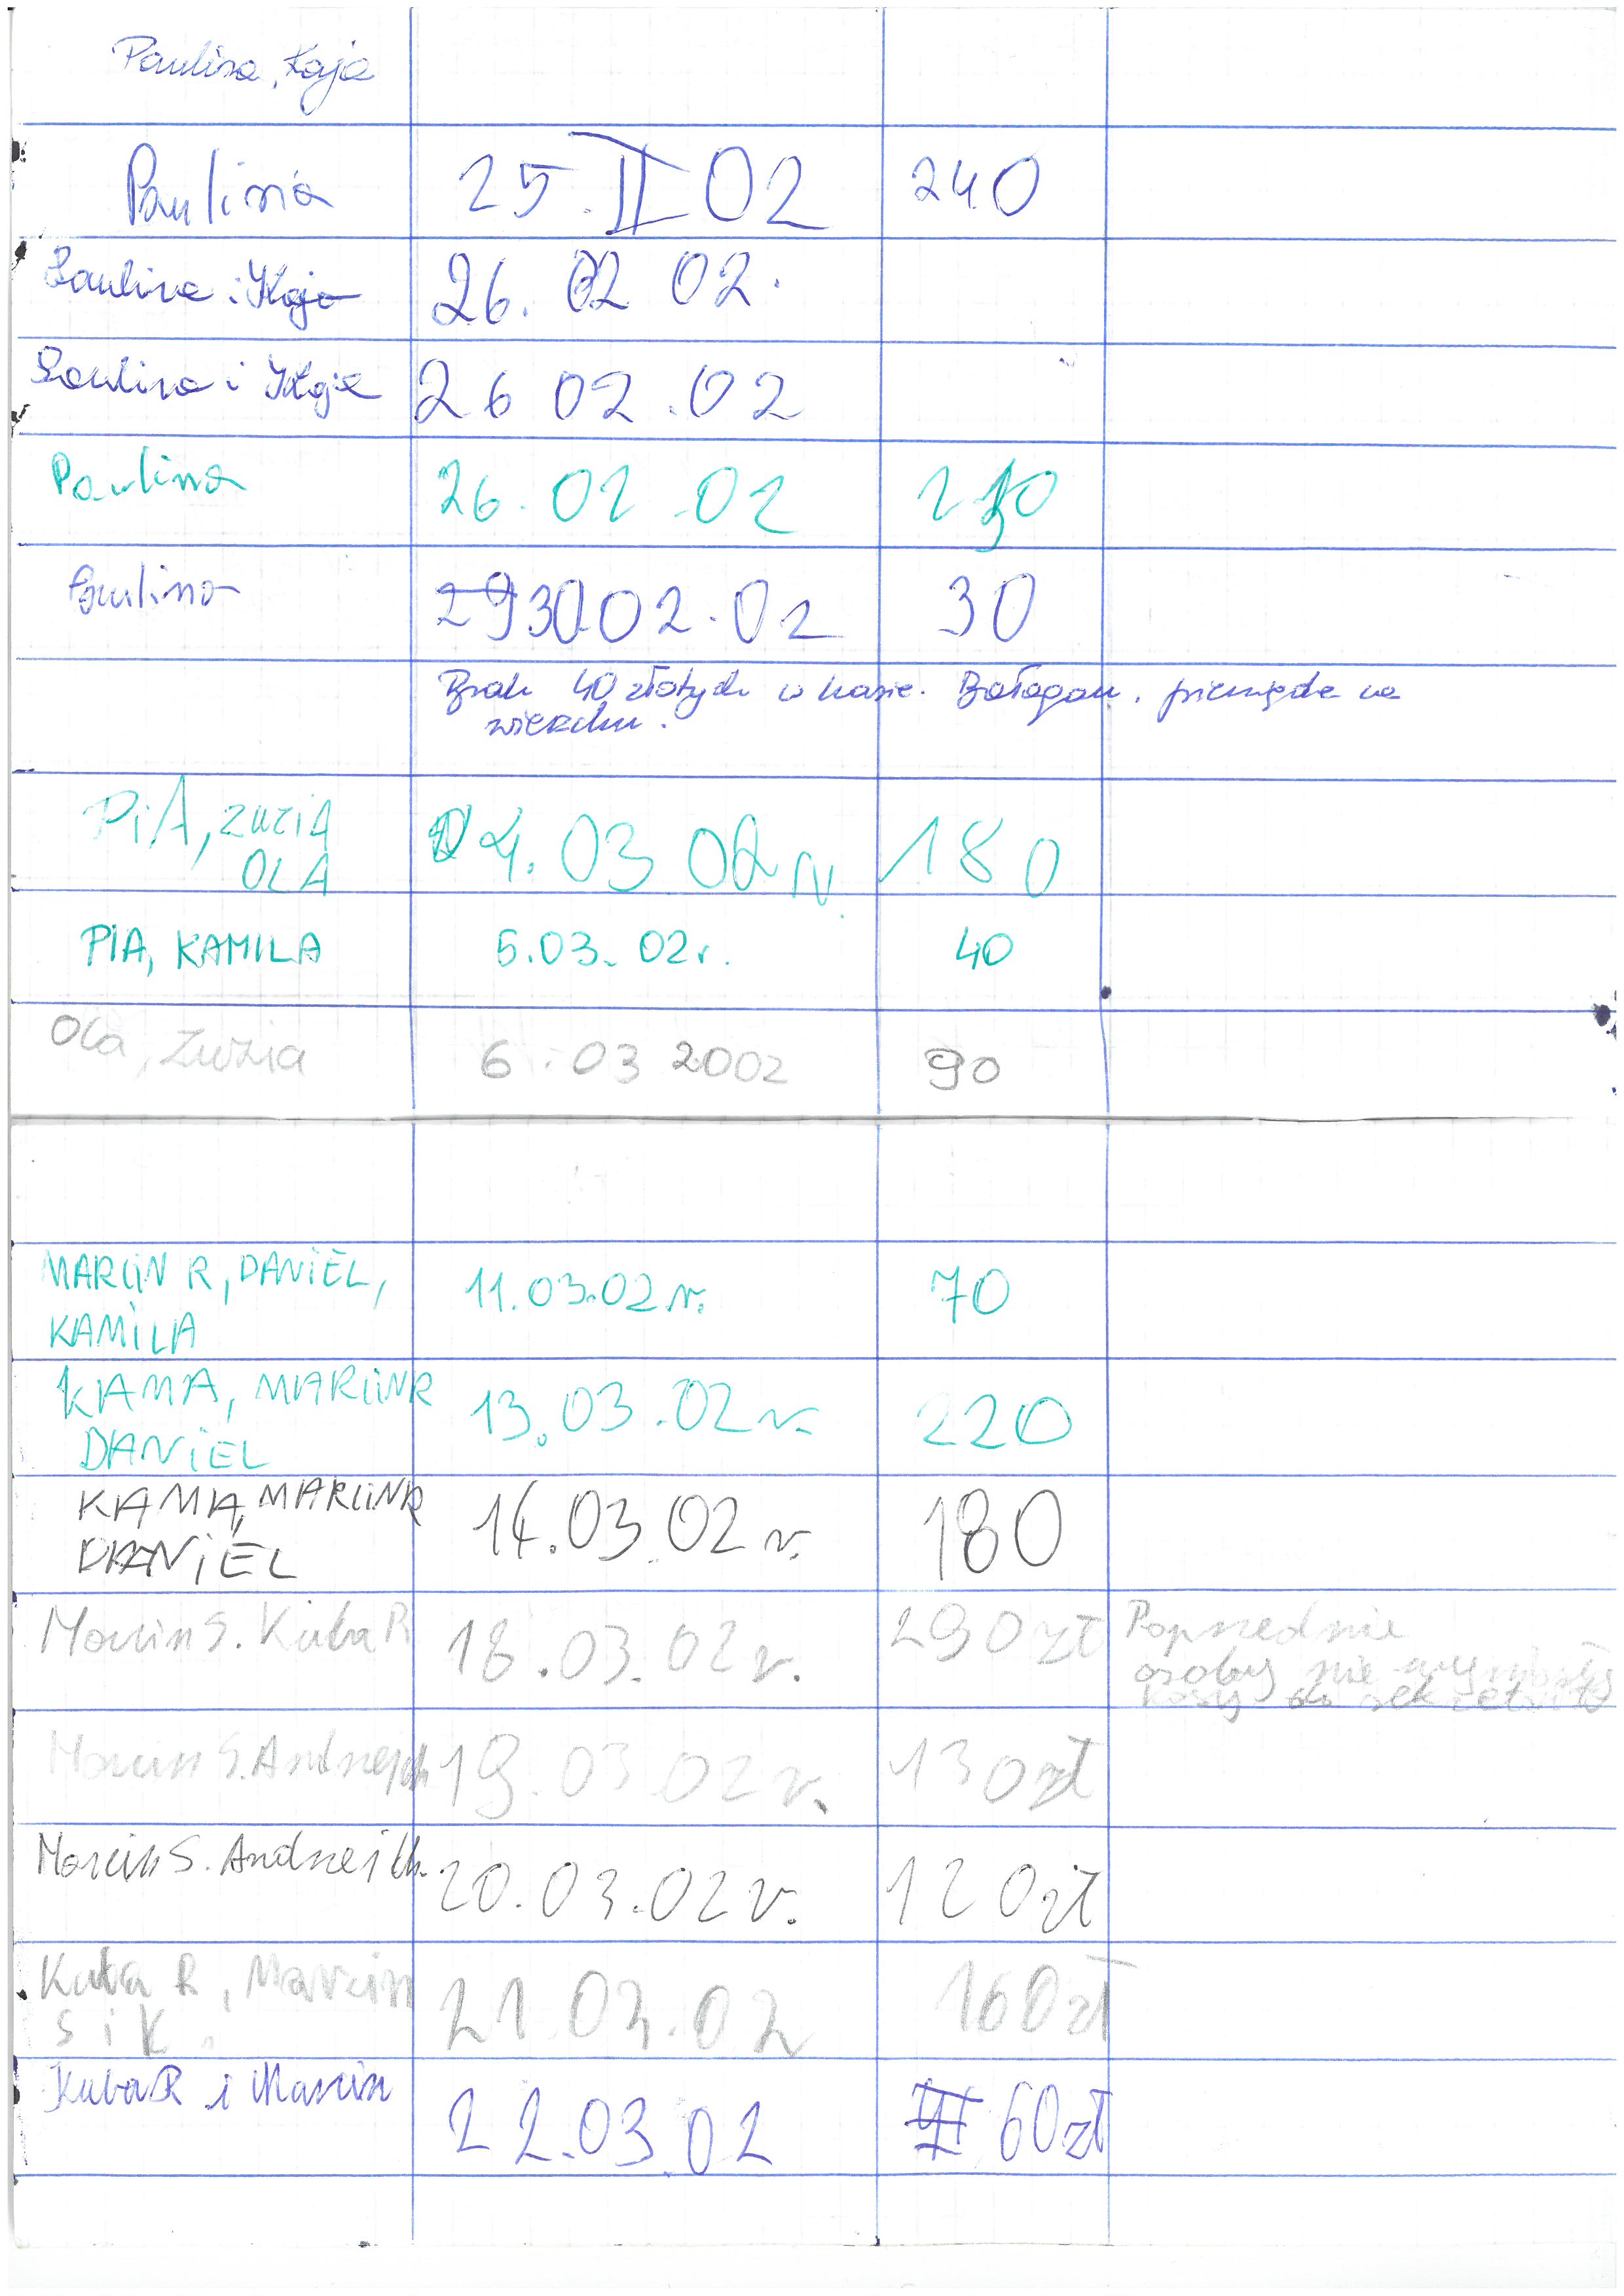 Paulina, Kaja
Paulina 25.II 02 240
Paulina i Kaja 26. 02 02.
Paulina i Kaja 26 02.02
Paulina 26.02.02
Paulina 30 02.02 30
Brak 40 złotych w kasie. Bałagan, pieniądze na
wierzchu.
PiA, ZUZIA
OLA 04.03.02 r. 180
PIA, KAMILA 5.03.02r. 40
Ola, Zuzia 6.03 2002 90
MARCIN R, DANIEL, 11.03.02 r. 70
KAMILA
KAMA, MARCIN R 13.03.02 r. 220
DANIEL
KAMA, MARCIN R 14.03.02 r. 180
DANIEL
Marcin S. Kuba R 18.03.02 r. 290 zł Poprzednie
osoby nie
kasy do
Marcin S. Andrzej 19.03 02 r. 130 zł
Marcin S. Andrzej 20.03.02 r. 120 zł
Kuba R, Marcin 21.03.02 160 zł
S i K.
Kuba R i Marcin 22.03.02 60 zł